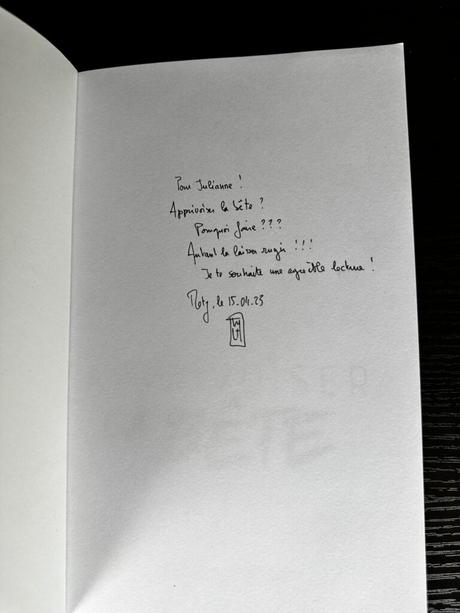 Pour Julianne !
Apprivoiser la bête ?
Pourquoi faire ???
Autant la laisser rugir !!!
Je te souhaite une agréable lecture !
Metz, le 15.04.23